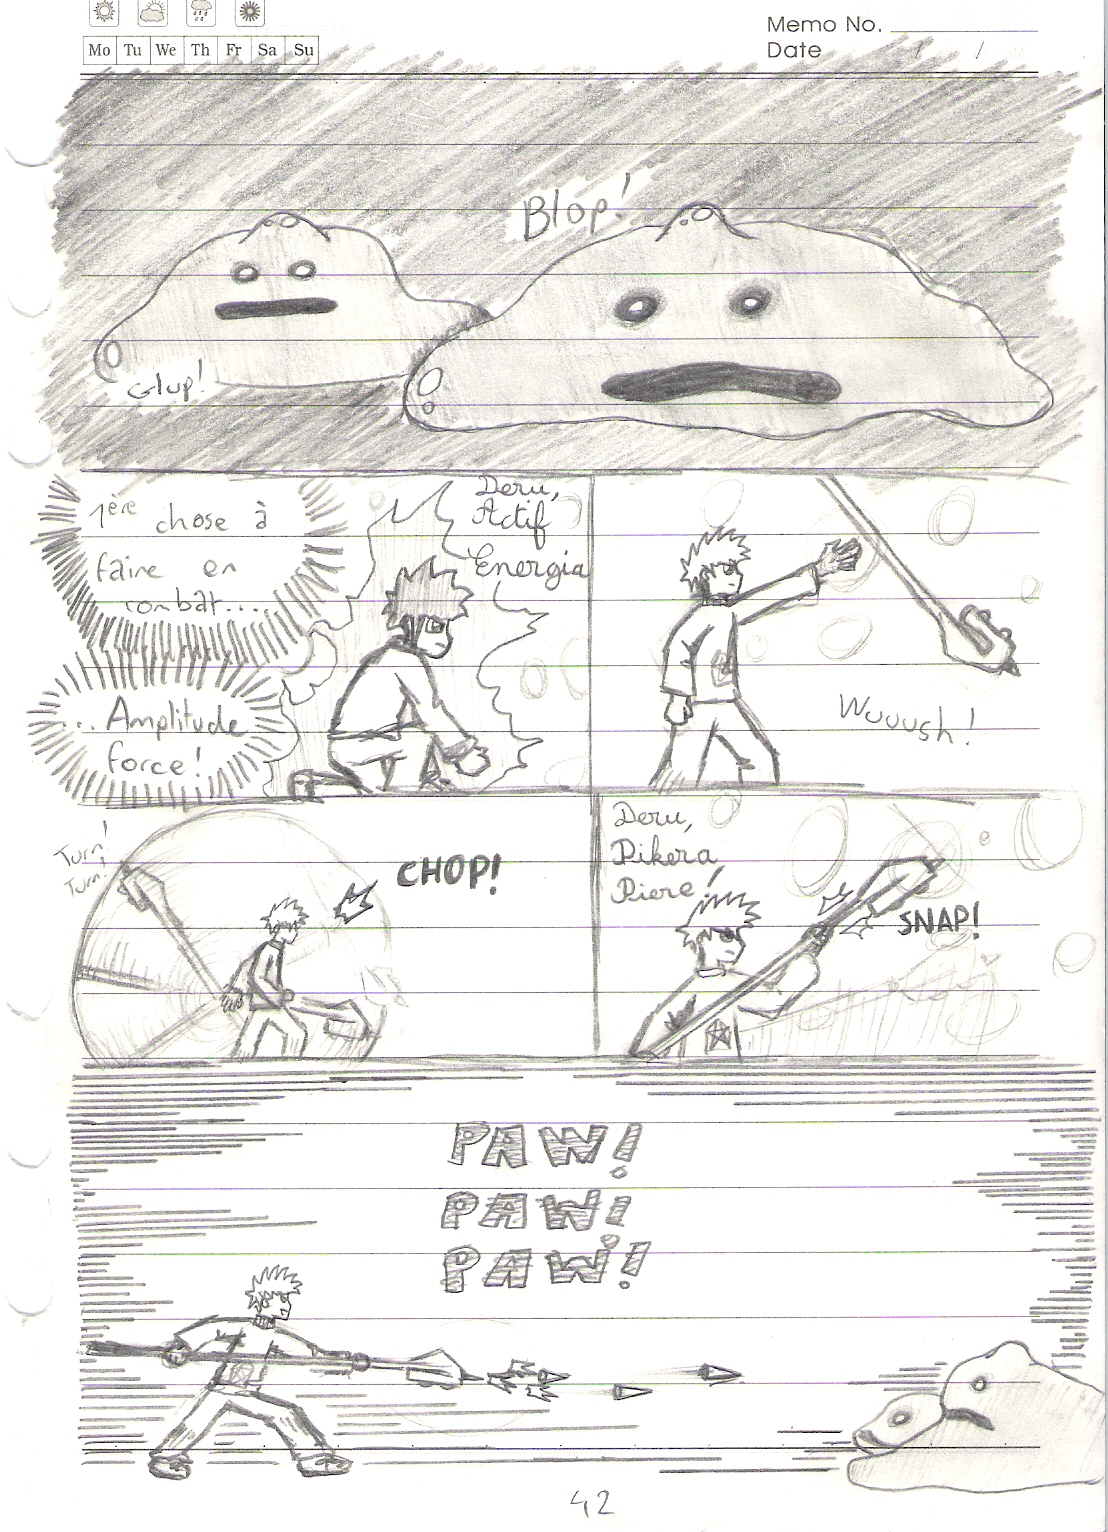 Mo Tu We Th Fr Sa Su
Memo No.
Date / /
Blop!
Glup!
1ère chose à
faire en
combat...
... Amplitude
force!
Deru,
Actif
Energia
Wuuush!
Turn!
Turn!
CHOP!
Deru,
Pikera
Piere!
SNAP!
PAW!
PAW!
PAW!
42